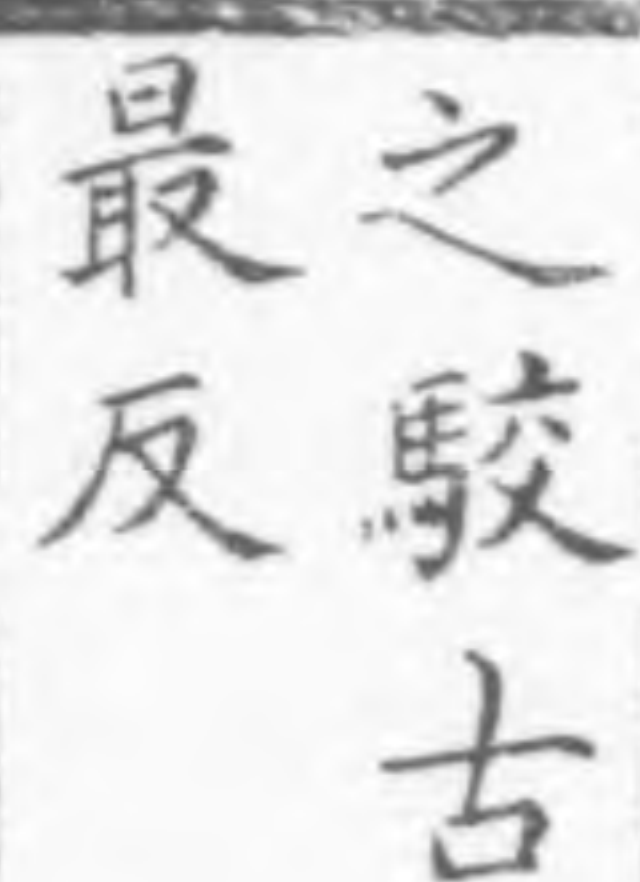 之駮古
最反